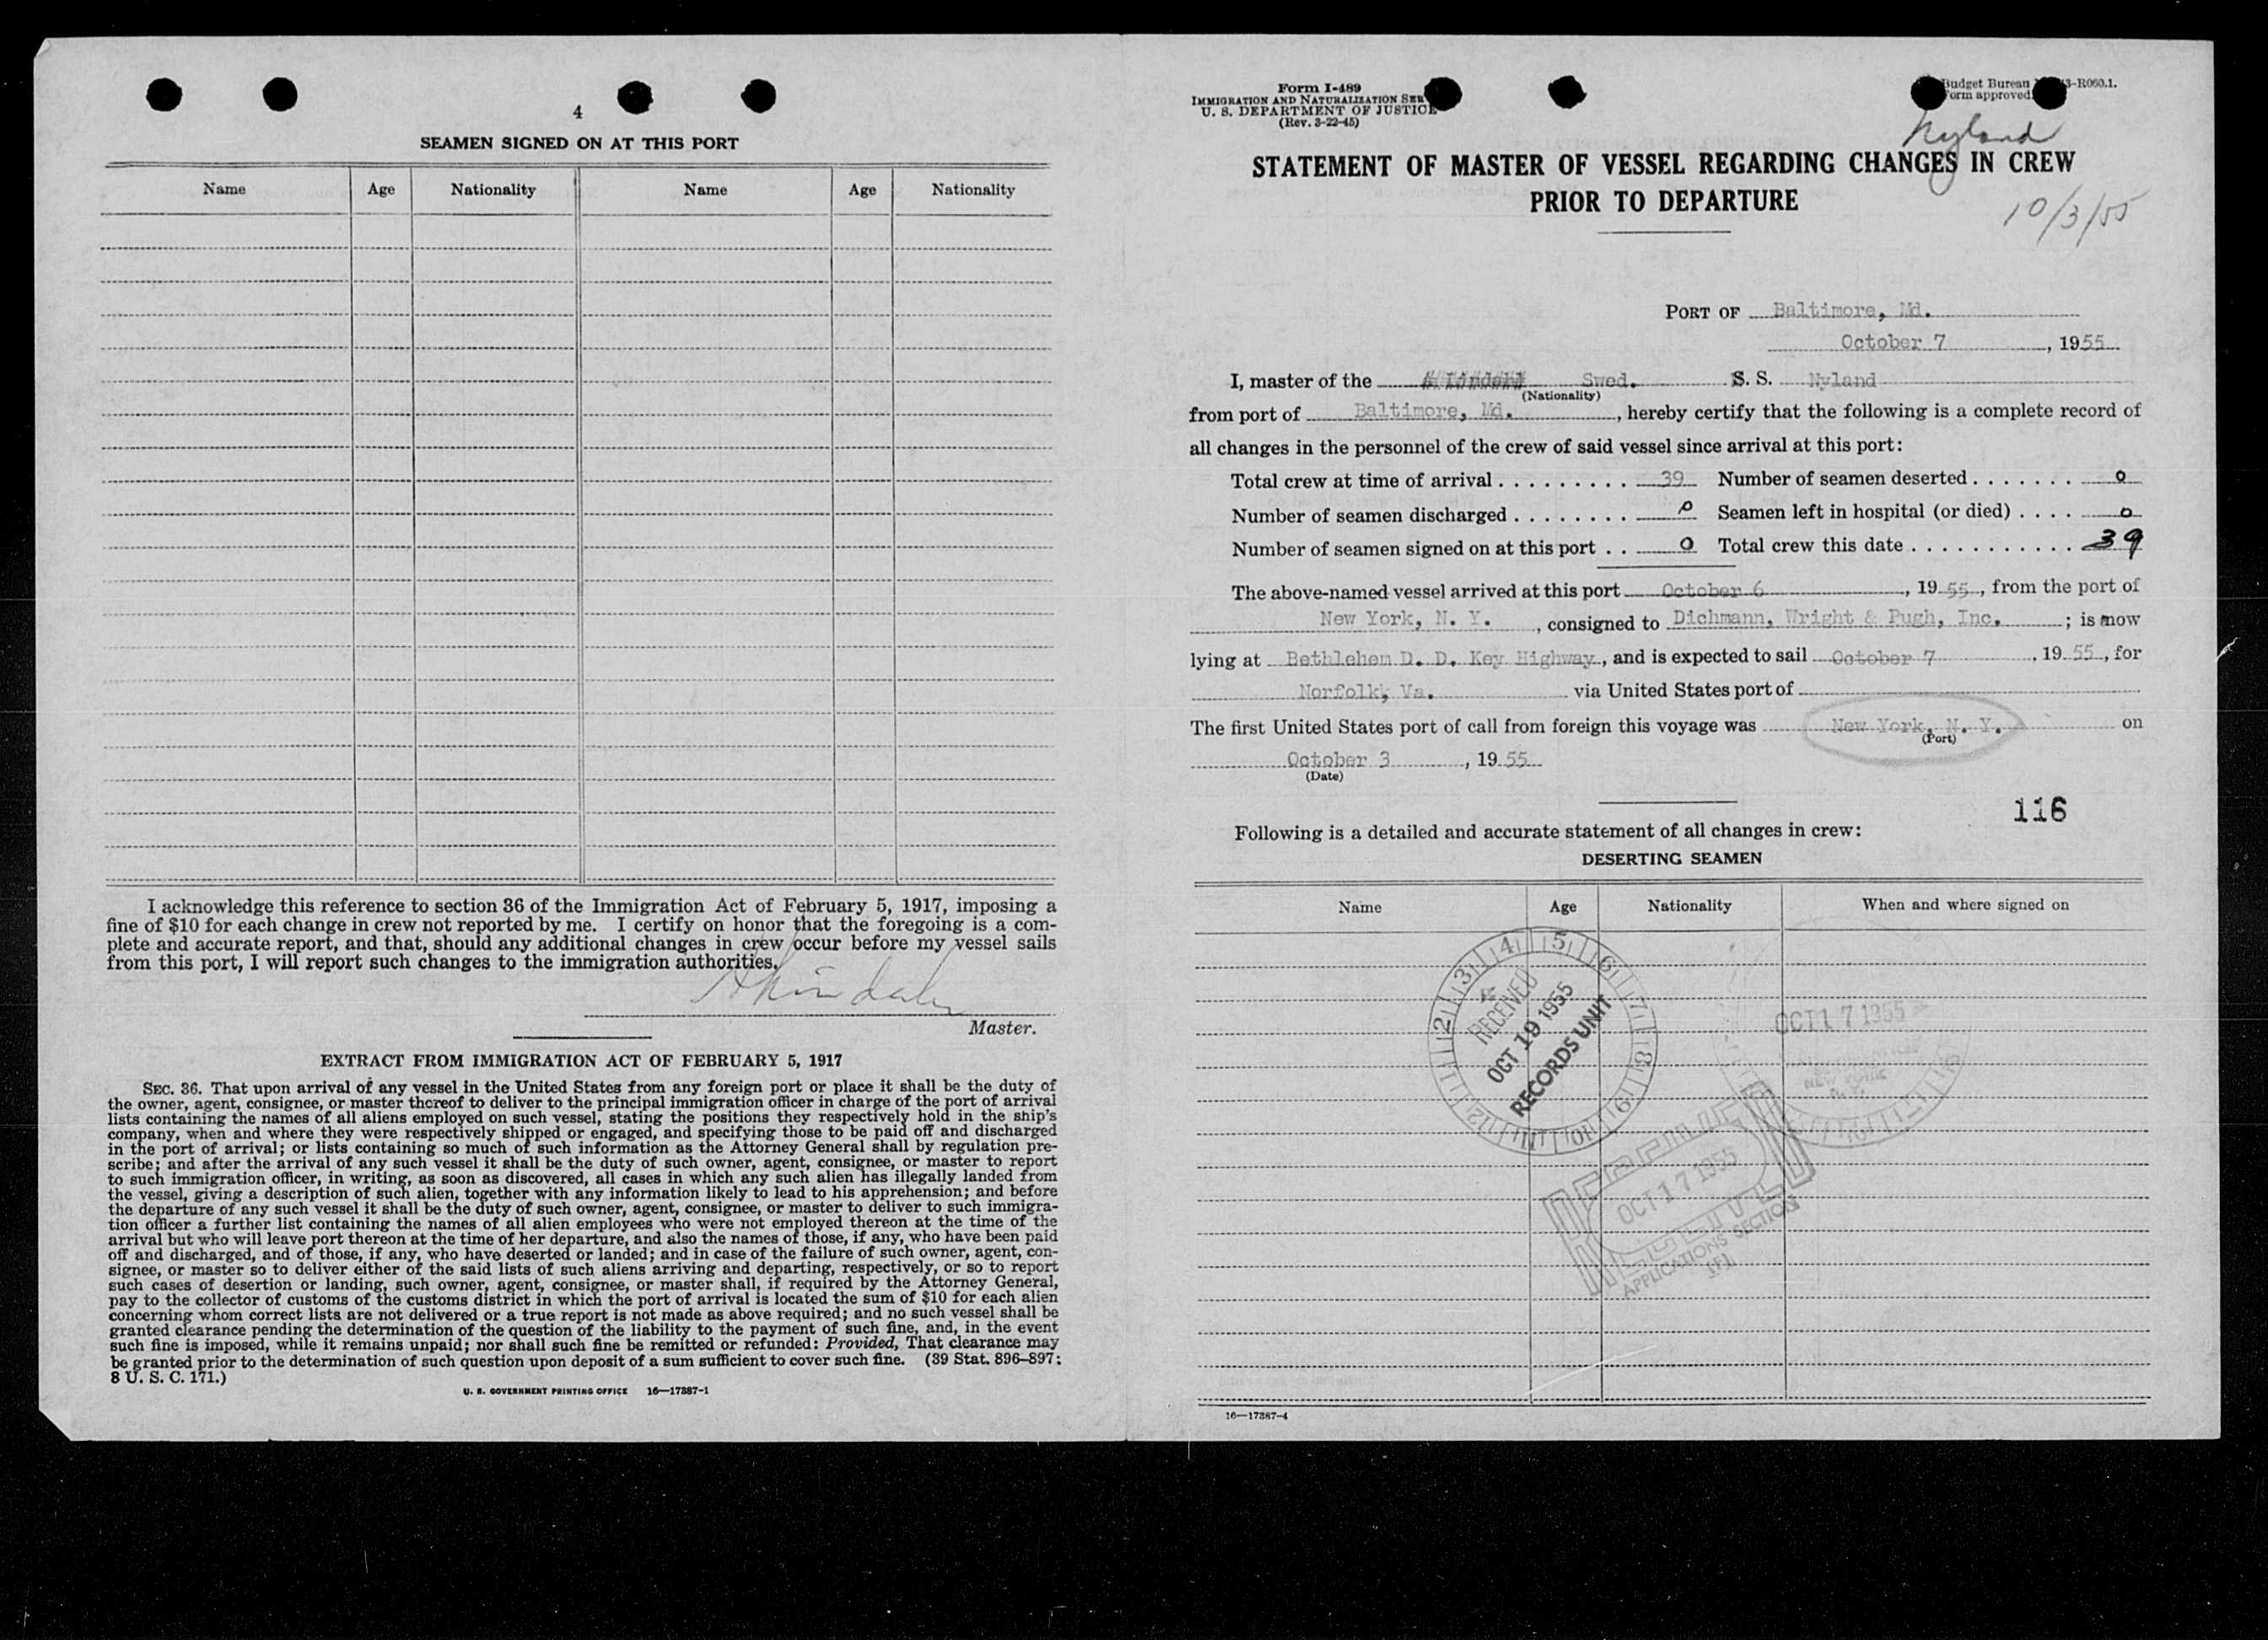 4
SEAMEN SIGNED ON AT THIS PORT
Name Age Nationality Name Age Nationality
I acknowledge this reference to section 36 of the Immigration Act of February 5, 1917, imposing a
fine of $10 for each change in crew not reported by me. I certify on honor that the foregoing is a com-
plete and accurate report, and that, should any additional changes in crew occur before my vessel sails
from this port, I will report such changes to the immigration authorities.
Master.
EXTRACT FROM IMMIGRATION ACT OF FEBRUARY 5, 1917
SEC. 36. That upon arrival of any vessel in the United States from any foreign port or place it shall be the duty of
the owner, agent, consignee, or master thereof to deliver to the principal immigration officer in charge of the port of arrival
lists containing the names of all aliens employed on such vessel, stating the positions they respectively hold in the ship's
company, when and where they were respectively shipped or engaged, and specifying those to be paid off and discharged
in the port of arrival; or lists containing so much of such information as the Attorney General shall by regulation pre-
scribe; and after the arrival of any such vessel it shall be the duty of such owner, agent, consignee, or master to report
to such immigration officer, in writing, as soon as discovered, all cases in which any such alien has illegally landed from
the vessel, giving a description of such alien, together with any information likely to lead to his apprehension; and before
the departure of any such vessel it shall be the duty of such owner, agent, consignee, or master to deliver to such immigra-
tion officer a further list containing the names of all alien employees who were not employed thereon at the time of the
arrival but who will leave port thereon at the time of her departure, and also the names of those, if any, who have been paid
off and discharged, and of those, if any, who have deserted or landed; and in case of the failure of such owner, agent, con-
signee, or master so to deliver either of the said lists of such aliens arriving and departing, respectively, or so to report
such cases of desertion or landing, such owner, agent, consignee, or master shall, if required by the Attorney General,
pay to the collector of customs of the customs district in which the port of arrival is located the sum of $10 for each alien
concerning whom correct lists are not delivered or a true report is not made as above required; and no such vessel shall be
granted clearance pending the determination of the question of the liability to the payment of such fine, and, in the event
such fine is imposed, while it remains unpaid; nor shall such fine be remitted or refunded: Provided, That clearance may
be granted prior to the determination of such question upon deposit of a sum sufficient to cover such fine. (39 Stat. 896–897;
8 U. S. C. 171.)
U. S. GOVERNMENT PRINTING OFFICE 16—17387-1
Form I-489
IMMIGRATION AND NATURALIZATION SER
U. S. DEPARTMENT OF JUSTICE
(Rev. 3-22-45)
Budget Bureau 3-R060.1.
Form approved
Nyland
STATEMENT OF MASTER OF VESSEL REGARDING CHANGES IN CREW
PRIOR TO DEPARTURE
10/3/55
PORT OF Baltimore, Md.
October 7, 1955
I, master of the Swed. S. S. Nyland
(Nationality)
from port of Baltimore, Md., hereby certify that the following is a complete record of
all changes in the personnel of the crew of said vessel since arrival at this port:
Total crew at time of arrival 39 Number of seamen deserted 0
Number of seamen discharged 0 Seamen left in hospital (or died) 0
Number of seamen signed on at this port 0 Total crew this date 39
The above-named vessel arrived at this port October 6, 1955, from the port of
New York, N. Y., consigned to Dichmann, Wright & Pugh, Inc.; is now
lying at Bethlehem D. D. Key Highway, and is expected to sail October 7, 1955, for
Norfolk, Va. via United States port of
The first United States port of call from foreign this voyage was New York, N. Y. on
(Port)
October 3, 1955
(Date)
116
Following is a detailed and accurate statement of all changes in crew:
DESERTING SEAMEN
Name Age Nationality When and where signed on
RECEIVED
OCT 19 1955
RECORDS UNIT
OCT 17 1955
NEW YORK
N. Y.
OCT 17 1955
APPLICATIONS SECTION
16—17387-4